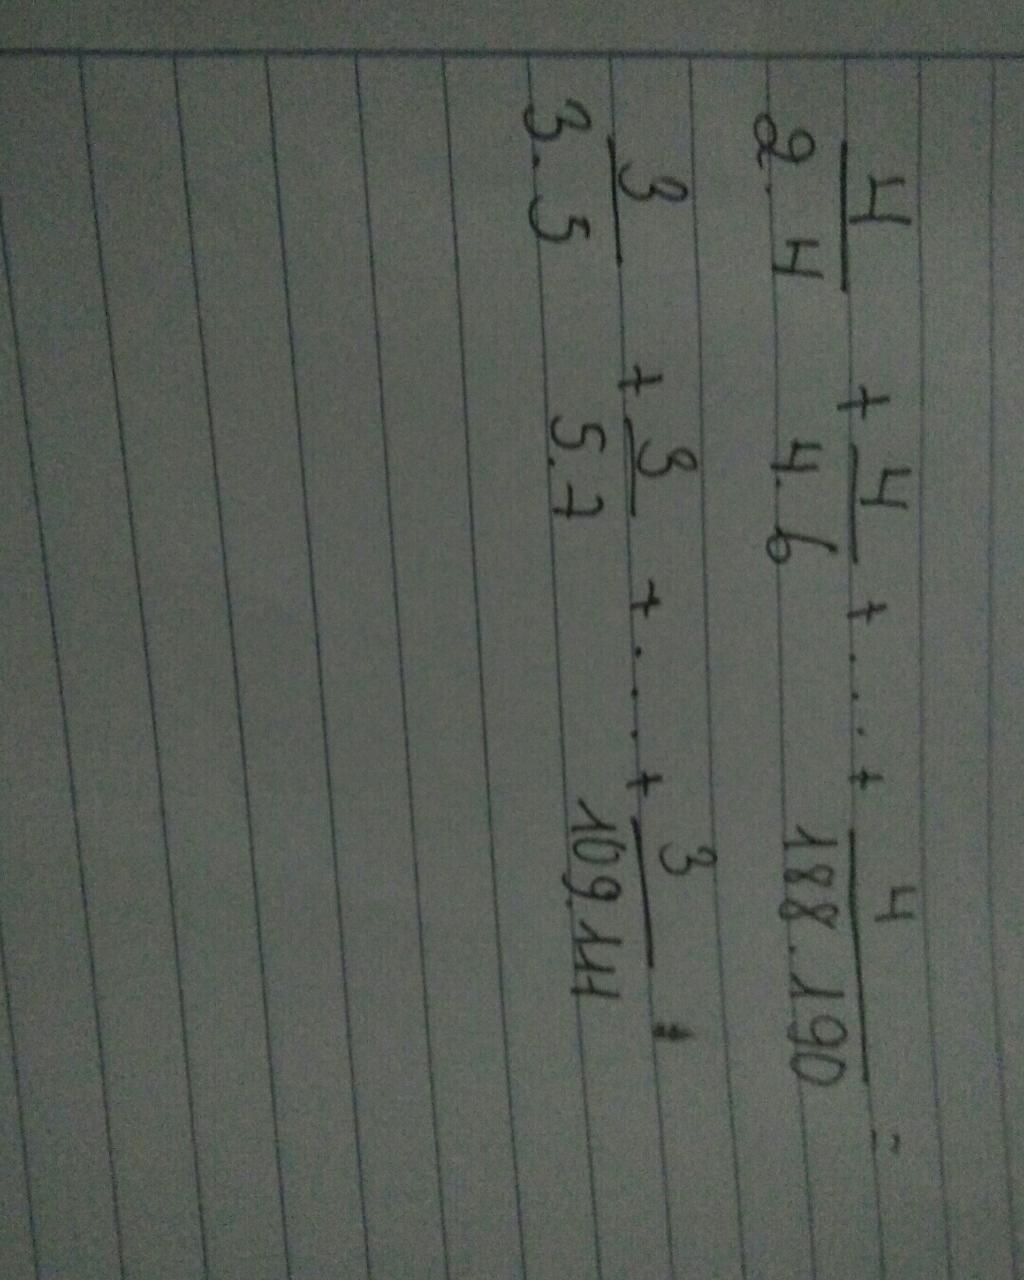 4/2.4 + 4/4.6 + .... + 4/188.190 =
3/3.5 + 3/5.7 + .... + 3/109.111 =